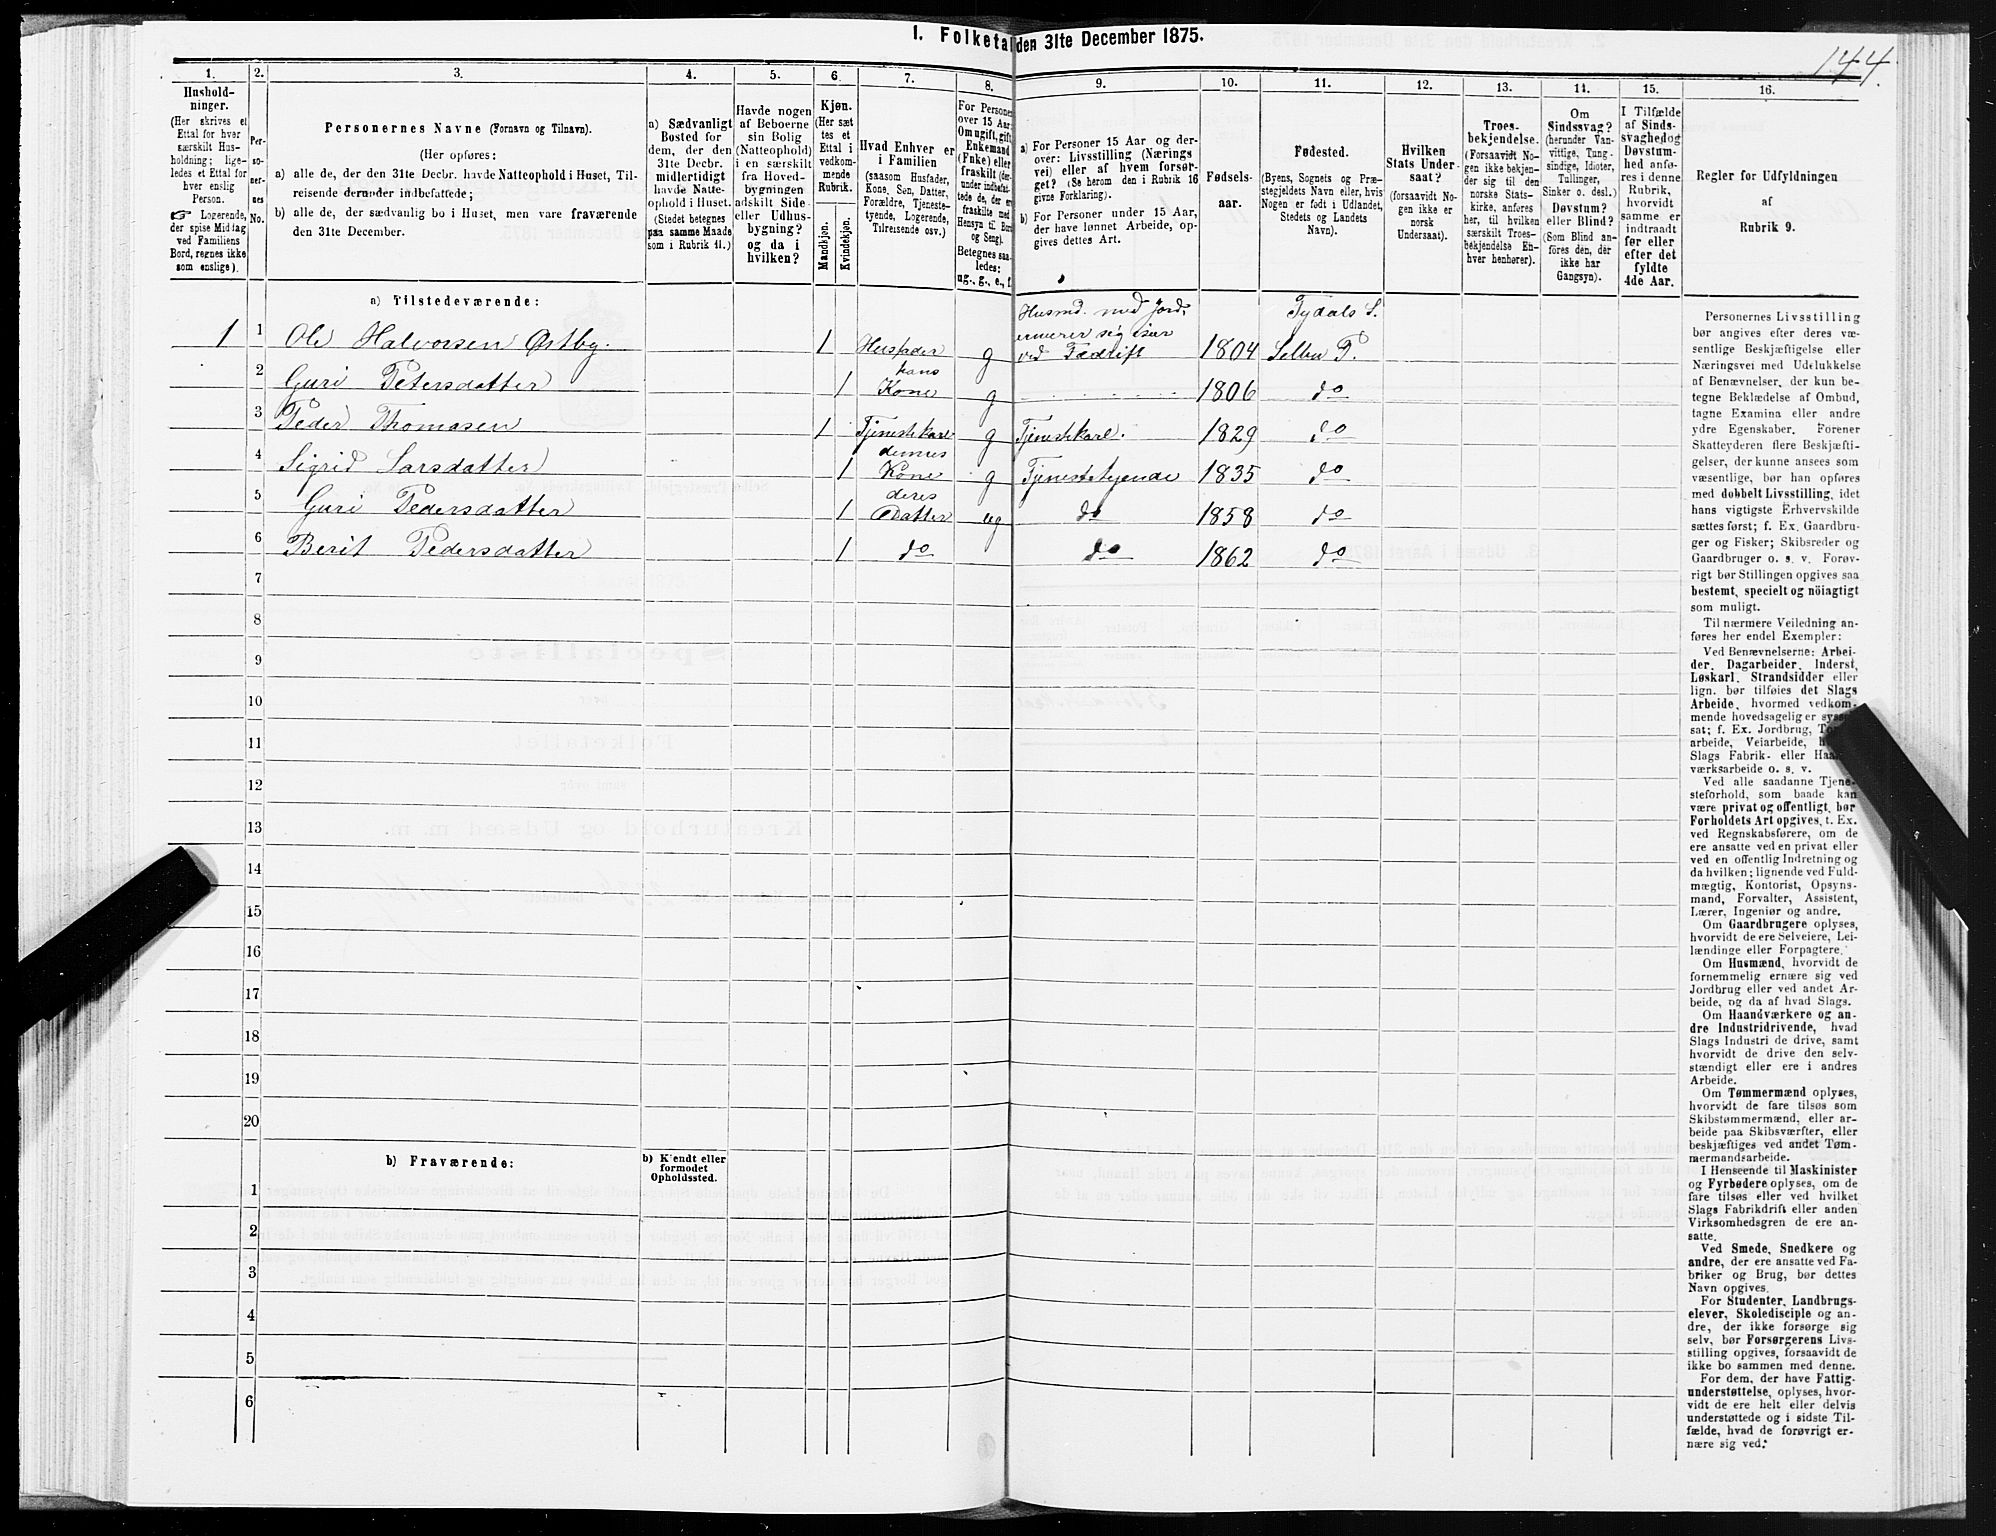 I. Folketal den 31te December 1875.
144.
1.
Husholdninger.
(Her skrives et
Ettal for hver
særskilt Husholdning; ligeledes
et Ettal for
hver enslig
Person.
☞ Logerende,
der spise Middag
ved Familiens
Bord, regnes ikke
som enslige).
2.
Personernes
No.
3.
Personernes Navne (Fornavn og Tilnavn).
(Her opføres:
a) alle de, der den 31te Decbr. havde Natteophold i Huset, Tilreisende
derunder indbefattede;
b) alle de, der sædvanlig bo i Huset, men vare fraværende
den 31te December.
4.
a) Sædvanligt
Bosted for
dem, der den
31te Decbr.
midlertidigt
havde Natteophold
i Huset.
(Stedet betegnes
paa samme Maade
som i Rubrik 11.)
5.
Havde nogen
af Beboerne
sin Bolig
(Natteophold)
i en særskilt
fra Hovedbygningen
adskilt Side-
eller Udhusbygning?
og da i
hvilken?
6.
Kjøn.
(Her sættes
et
Ettal i
vedkommende
Rubrik.
Mandkjøn.
Kvindekjøn.
7.
Hvad Enhver er
i Familien
(saasom Husfader,
Kone, Søn, Datter,
Forældre, Tjenestetyende,
Logerende,
Tilreisende osv.)
8.
For Personer
over 15 Aar:
Om ugift, gift,
Enkemand
(Enke) eller
fraskilt (derunder
indbefattede
de, der ere
fraskilte med
Hensyn til Bord
og Seng).
Betegnes saaledes:
ug., g., e., f.
9.
a) For Personer 15 Aar og derover:
Livsstilling (Næringsvei)
eller af hvem forsørget?
(Se herom den i Rubrik 16
givne Forklaring).
b) For Personer under 15 Aar,
der have lønnet Arbeide, opgives
dettes Art.
10.
Fødselsaar.
11.
Fødested.
(Byens, Sognets og Præstegjeldets
Navn eller, hvis
Nogen er født i Udlandet,
Stedets og Landets
Navn).
12.
Hvilken
Stats Undersaat?
(forsaavidt Nogen
ikke er
norsk
Undersaat).
13.
Troesbekjendelse.
(Forsaavidt Nogen
ikke bekjender
sig til den
norske Statskirke,
anføres
her, til hvilken
særskilt Troesbekjendelse
Enhver
henhører).
14.
Om
Sindssvag?
(herunder Vanvittige,
Tungsindige,
Idioter,
Tullinger,
Sinker o. desl.)
Døvstum?
eller Blind?
(Som Blind anføres
den, der
ikke har
Gangsyn).
15.
I Tilfælde
af Sindssvaghed
og
Døvstumhed
anføres
i denne
Rubrik,
hvorvidt
samme er
indtraadt
før eller
efter det
fyldte
4de Aar.
16.
Regler for Udfyldningen
af
Rubrik 9.
a) Tilstedeværende:
1 1 Ole Halvorsen Østby. 1 Husfader g Husmd. med Jord, ernærer sig især ved Fædrift 1804 Tydals S. Selbu P.
2 Guri Petersdatter 1 hans Kone g 1806 do
3 Peder Thomasen 1 Tjenestekarl g Tjenestekarl. 1829 do
4 Sigrid Larsdatter 1 dennes Kone g Tjenestetyende 1835 do
5 Guri Pedersdatter 1 deres Datter ug do 1858 do
6 Berit Pedersdatter 1 do do 1862 do
7
8
9
10
11
12
13
14
15
16
17
18
19
20
b) Fraværende:
b) Kjendt eller
formodet
Opholdssted.
1
2
3
4
5
6
Personernes Livsstilling
bør angives efter deres væsentlige
Beskjæftigelse eller
Næringsvei med Udelukkelse
af Benævnelser, der kun betegne
Beklædelse af Ombud,
tagne Examina eller andre
ydre Egenskaber. Forener
Skatteyderen flere Beskjæftigelser,
der kunne ansees som
væsentlige, bør han opføres
med dobbelt Livsstilling, idet
hans vigtigste Erhvervskilde
sættes først; f. Ex. Gaardbruger
og Fisker; Skibsreder og
Gaardbruger o. s. v. Forøvrigt
bør Stillingen opgives saa
bestemt, specielt og nöiagtigt
som muligt.
Til nærmere Veiledning anføres
her endel Exempler:
Ved Benævnelserne: Arbeider,
Dagarbeider, Inderst,
Løskarl, Strandsidder eller
lign. bør tilføies det Slags
Arbeide, hvormed vedkommende
hovedsagelig er sysselsat;
f. Ex. Jordbrug,
arbeide, Veiarbeide,
Slags Fabrik- eller Haandværksarbeide
o. s. v.
Ved alle saadanne Tjenesteforhold,
som baade kan
være privat og offentligt, bør
Forholdets Art opgives, t. Ex.
ved Regnskabsførere, om de
ere ansatte ved en privat eller
ved en offentlig Indretning og
da hvilken; lignende ved Fuldmægtig,
Kontorist, Opsynsmand,
Forvalter, Assistent,
Lærer, Ingeniør og andre.
Om Gaardbrugere oplyses,
hvorvidt de ere Selveiere, Leilændinge
eller Forpagtere.
Om Husmænd, hvorvidt de
fornemmelig ernære sig ved
Jordbrug eller ved andet Arbeide,
og da af hvad Slags.
Om Haandværkere og andre
Industridrivende, hvad
Slags Industri de drive, samt
hvorvidt de drive den selvstændigt
eller ere i andres
Arbeide.
Om Tømmermænd oplyses,
hvorvidt de fare tilsøs som
Skibstømmermænd, eller arbeide
paa Skibsværfter, eller
beskjæftiges ved andet Tømmermandsarbeide.
I Henseende til Maskinister
og Fyrbødere oplyses, om de
fare tilsøs eller ved hvilket
Slags Fabrikdrift eller anden
Virksomhedsgren de ere ansatte.
Ved Smede, Snedkere og
andre, der ere ansatte ved Fabriker
og Brug, bør dettes
Navn opgives.
For Studenter, Landbrugselever,
Skoledisciple og andre,
der ikke forsørge sig
selv, bør Forsørgerens Livsstilling
opgives, forsaavidt de
ikke bo sammen med denne.
For dem, der have Fattigunderstøttelse,
oplyses, hvorvidt
de ere helt eller delvis
understøttede og i sidste Tilfælde,
hvad de forøvrigt ernære
sig ved.